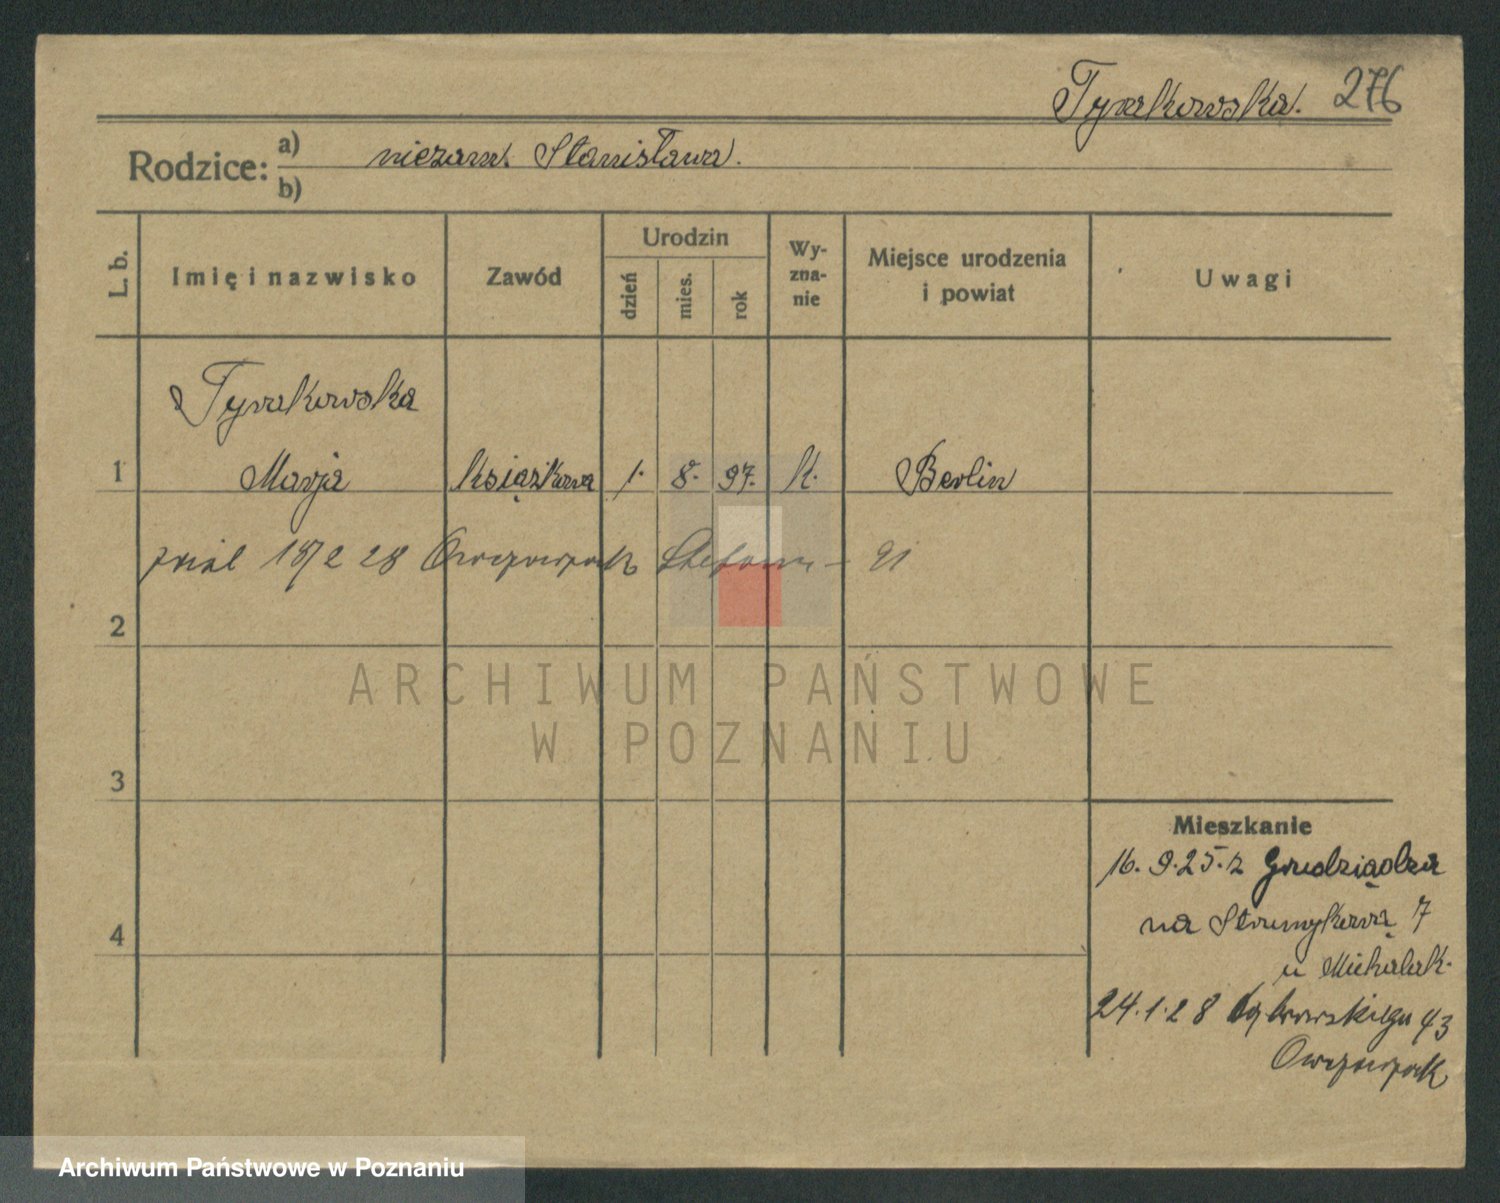 Tyrakowska. 276
Rodzice: a) niezam. Stanisława.
b)
L. b. Imię i nazwisko Zawód Urodzin dzień mies. rok Wy-zna-nie Miejsce urodzenia i powiat Uwagi
Tyrakowska
1 Marja książkowa 1. 8. 97. k. Berlin
28
2
3
4
Mieszkanie
16. 9. 25. z Grudziądza
na Strumykową 7
u Michalak.
24. 1. 28 Dąbrowskiego 43
ARCHIWUM PAŃSTWOWE
W POZNANIU
Archiwum Państwowe w Poznaniu